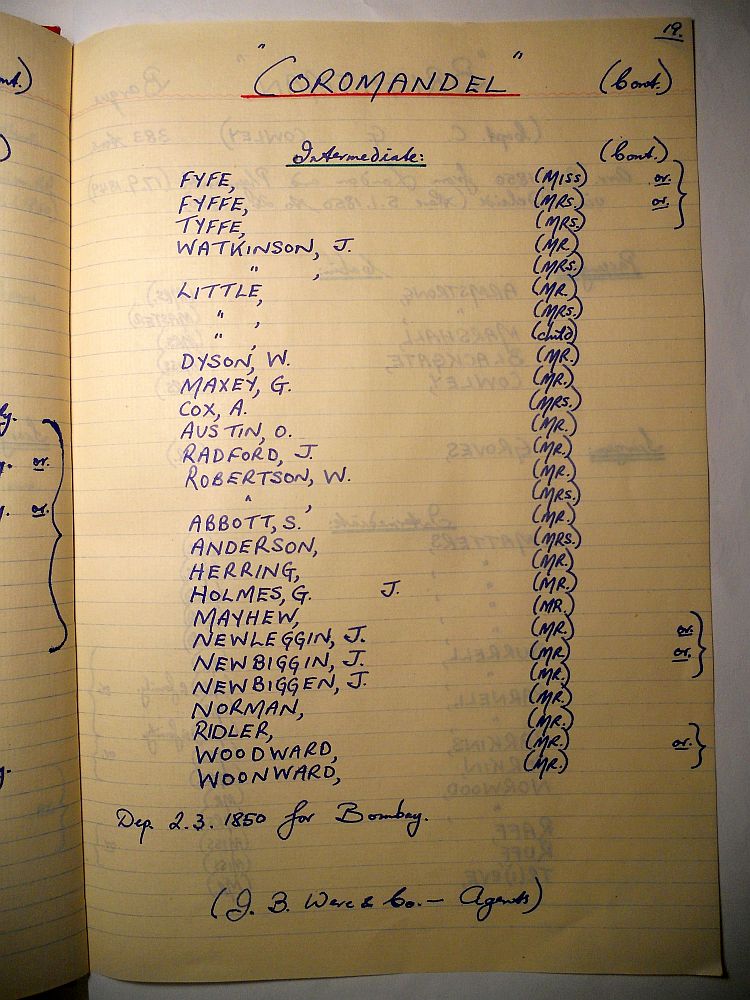 19.
"COROMANDEL" (Cont.)
Intermediate: (Cont.)
FYFE, (MISS) or.
FYFFE, (MRS.) or.
TYFFE, (MRS.)
WATKINSON, J. (MR.)
" , (MRS.)
LITTLE, (MR.)
" , (MRS.)
" , (child)
DYSON, W. (MR.)
MAXEY, G. (MR.)
COX, A. (MRS.)
AUSTIN, O. (MR.)
RADFORD, J. (MR.)
ROBERTSON, W. (MR.)
" , (MRS.)
ABBOTT, S. (MR.)
ANDERSON, (MRS.)
HERRING, (MR.)
HOLMES, G. J. (MR.)
MAYHEW, (MR.)
NEWLEGGIN, J. (MR.) or.
NEWBIGGIN, J. (MR.) or.
NEWBIGGEN, J. (MR.)
NORMAN, (MR.)
RIDLER, (MR.)
WOODWARD, (MR.) or.
WOONWARD, (MR.)
Dep. 2.3.1850 for Bombay.
(J. B. Were & Co. — Agents)